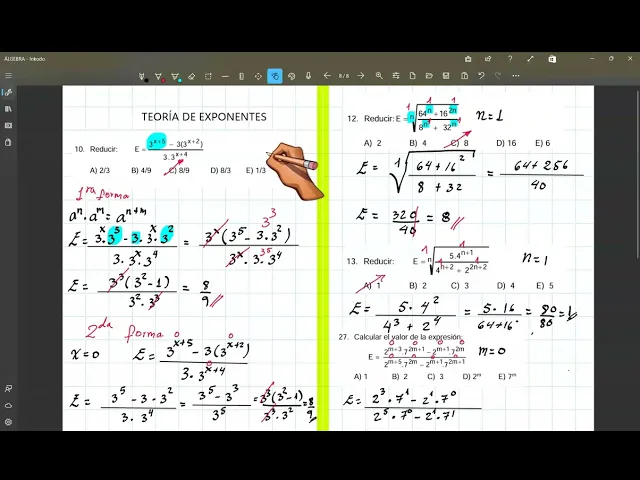 ÁLGEBRA - Inkodo
8 / 8
TEORÍA DE EXPONENTES
10. Reducir: E = (3^(x+5) − 3(3^(x+2))) / (3.3^(x+4))
A) 2/3 B) 4/9 C) 8/9 D) 8/3 E) 1/3
1ra forma
a^n . a^m = a^(n+m)
E = (3^x.3^5 − 3.3^x.3^2) / (3.3^x.3^4) = (3^x(3^5 − 3.3^2)) / (3^x.3.3^4)
E = (3^3(3^2−1)) / (3^2.3^3) = 8/9
2da forma
x=0 E = (3^(x+5) − 3(3^(x+2))) / (3.3^(x+4))
E = (3^5 − 3.3^2) / (3.3^4) = (3^5 − 3^3) / 3^5 = (3^3(3^2−1)) / (3^3.3^2) = 8/9
12. Reducir: E = n√((64^n + 16^(2n)) / (8^n + 32^n)) n=1
A) 2 B) 4 C) 8 D) 16 E) 6
E = 1√((64+16^2) / (8+32)) = (64+256) / 40
E = 320/40 = 8
13. Reducir: E = n√(5.4^(n+1) / (4^(n+2) + 2^(2n+2))) n=1
A) 1 B) 2 C) 3 D) 4 E) 5
E = (5.4^2) / (4^3 + 2^4) = (5.16) / (64+16) = 80/80 = 1
27. Calcular el valor de la expresión:
E = (2^(m+3).7^(2m+1) − 2^(m+1).7^(2m)) / (2^(m+5).7^(2m) − 2^(m+1).7^(2m+1)) m=0
A) 1 B) 2 C) 3 D) 2^m E) 7^m
E = (2^3.7^1 − 2^1.7^0) / (2^5.7^0 − 2^1.7^1)